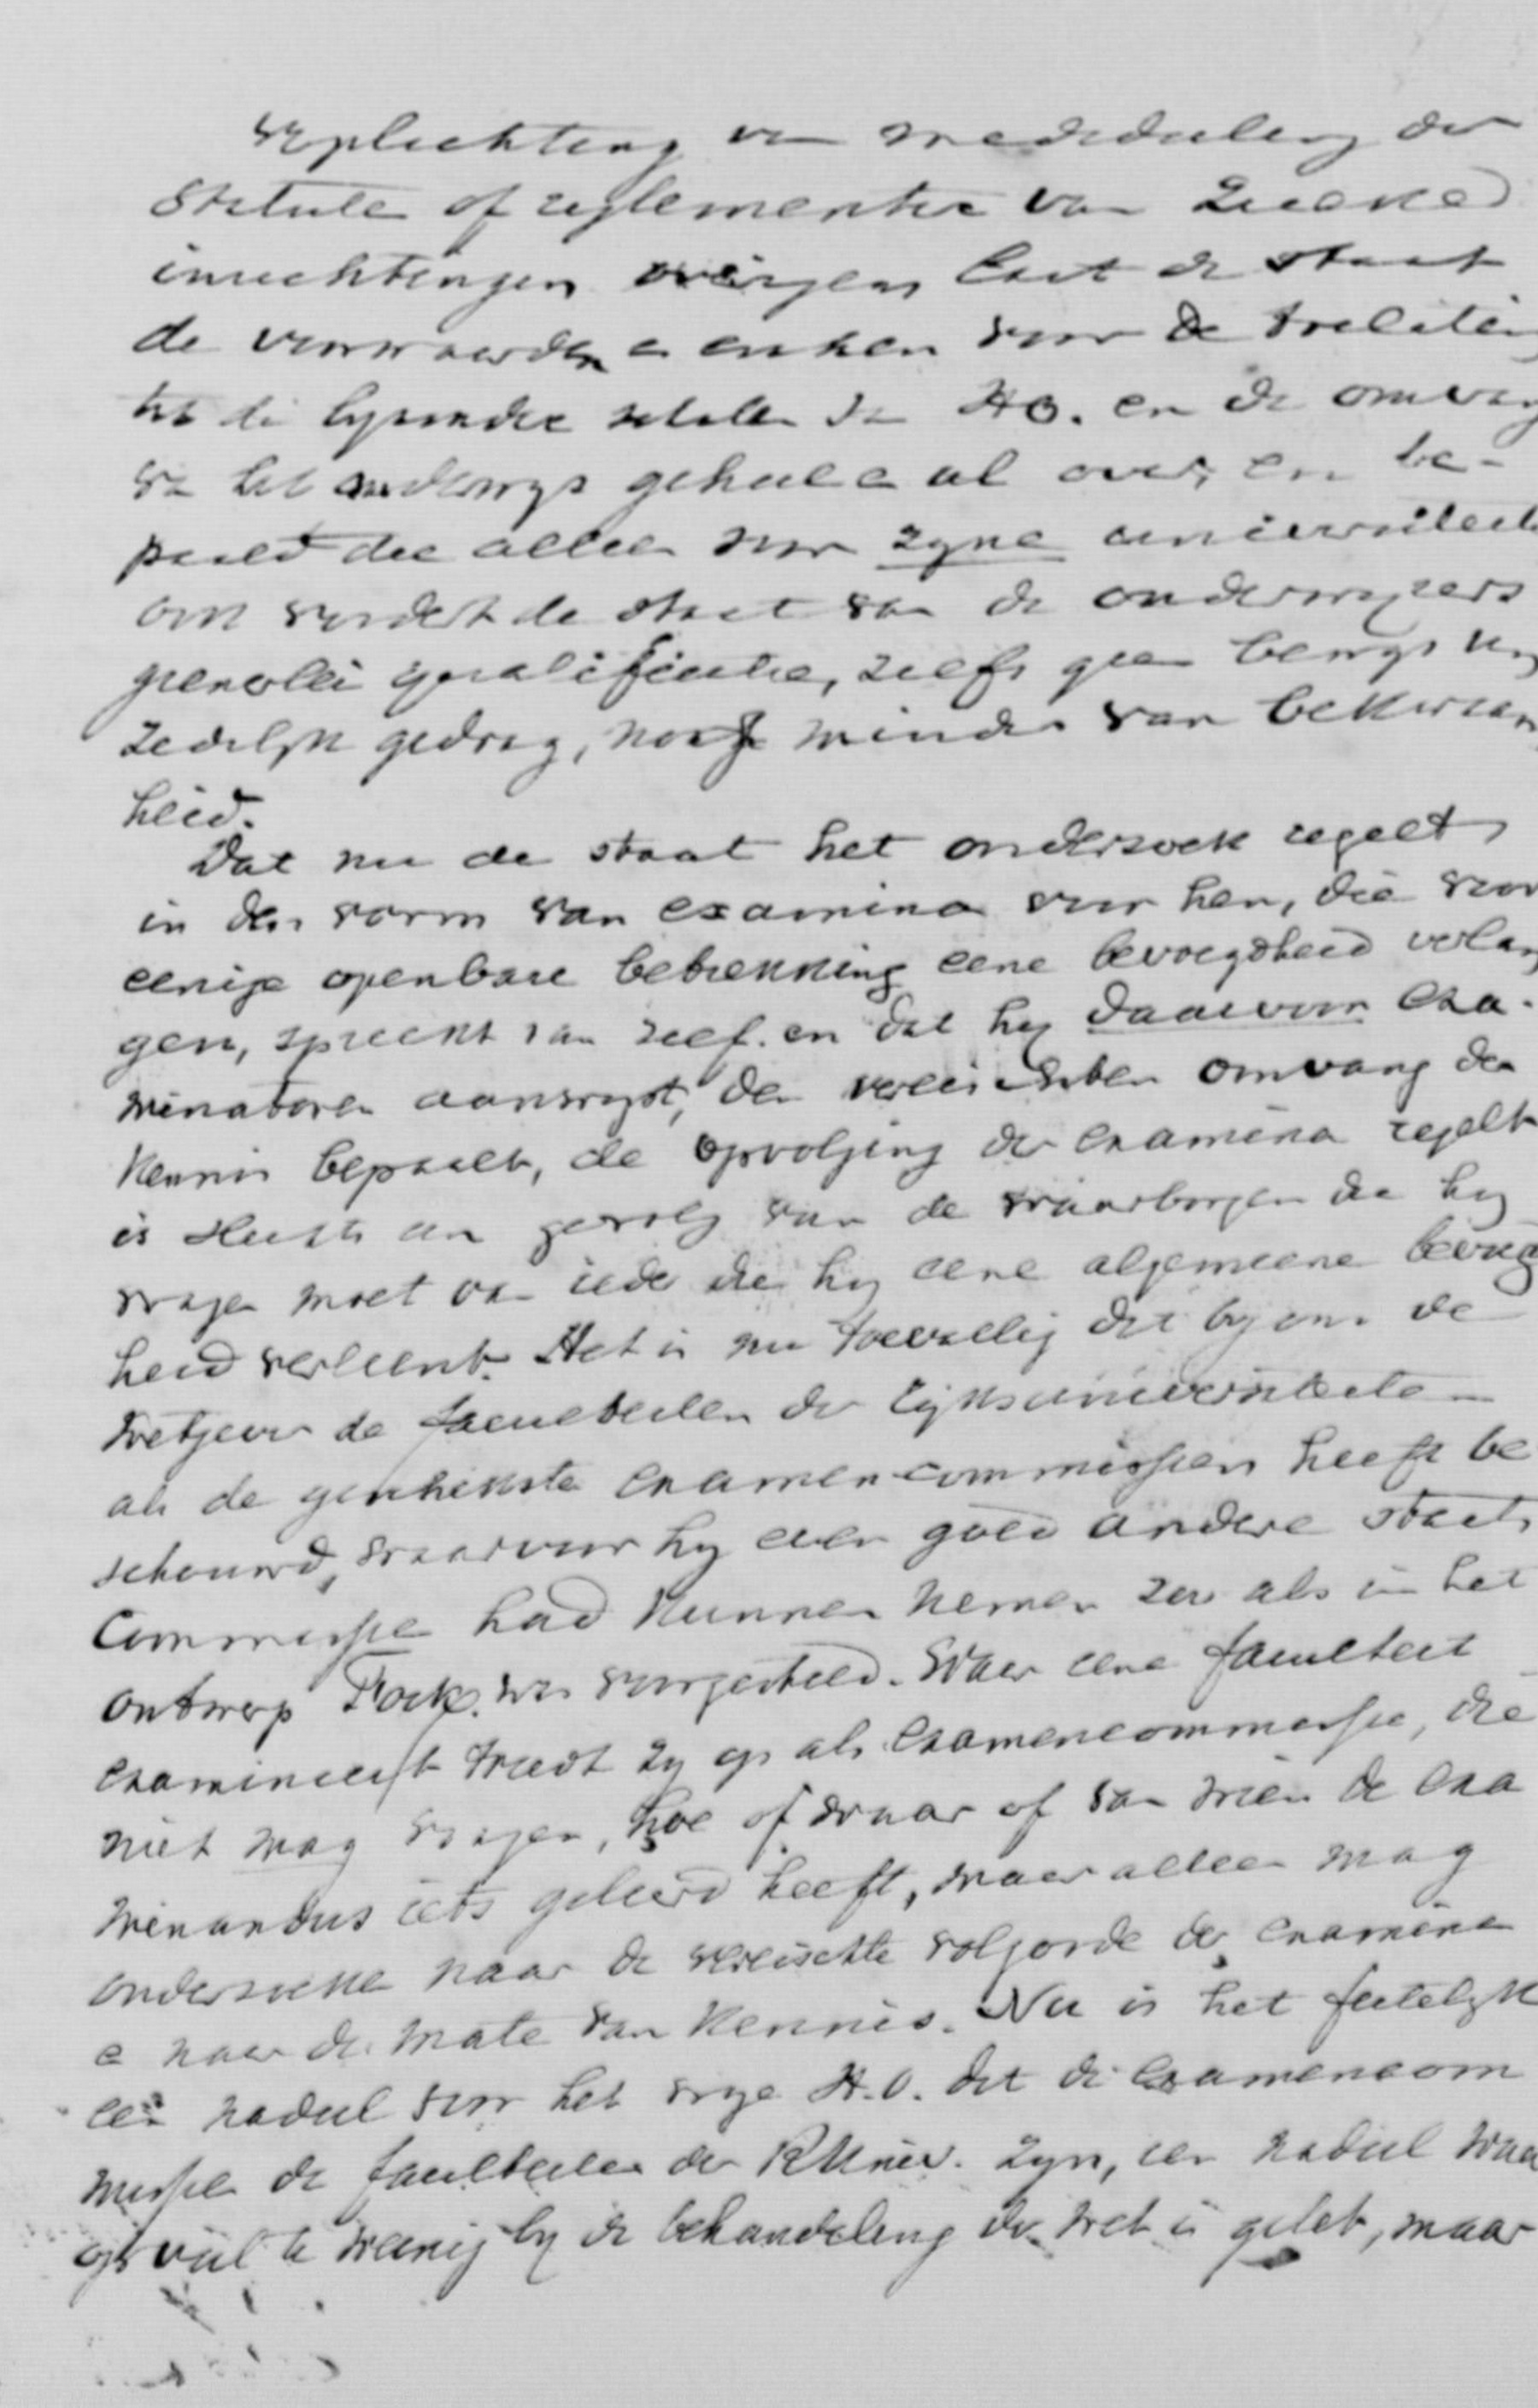 verplichting van mededeeling der
Statuten of reglementen van zulke
inrichtingen overigens laat de staat
de voorwaarden en eischen voor de toelating
tot de byzondere scholen van HO. en de omvang
van het onderwys geheel al over, en be-
paald die alleen voor zyne universiteit
ook vordert de staat van de onderwyzers
geenerlei qualificatie, zelfs geen bewys van
zedelyk gedrag, noch minder van bekwaam
heid.
Dat nu de staat het onderzoek regelt
in den vorm van examina voor hen, die voor
eenige openbare betrekking eene bevoegdheid verlan
gen, spreekt van zelf. en dat hy daarvoor exa-
minatoren aanwyst, den vereischten omvang der
kennis bepaalt, de opvolging der examina regelt
is slechts een gevolg van de waarborgen die hy
vragen moet van ieder die hy eene algemeene bevoegd
heid verleent. Het is nu toevallig dat by ons de
wetgever de faculteiten der Ryksuniversiteiten
als de geschikste examen-commissien heeft be
schouwd, waarvoor hy even goed andere staats
Commissie had kunnen nemen zoo als in het
ontwerp Fock was voorgesteld. Waar eene faculteit
examineert treedt zy op als examencommissie, die
niet mag vragen, hoe of waar of van wien de exa
minandus iets geleerd heeft, maar alleen mag
onderzoeken naar de vereischte volgorde der examina
en naar de mate van kennis. Nu is het feitelyk
een nadeel voor het vrye H.O. dat de Examencom
missien de faculteiten der RUniv. zyn, een nadeel waar
op veel te weinig by de behandeling der wet is gelet, maar